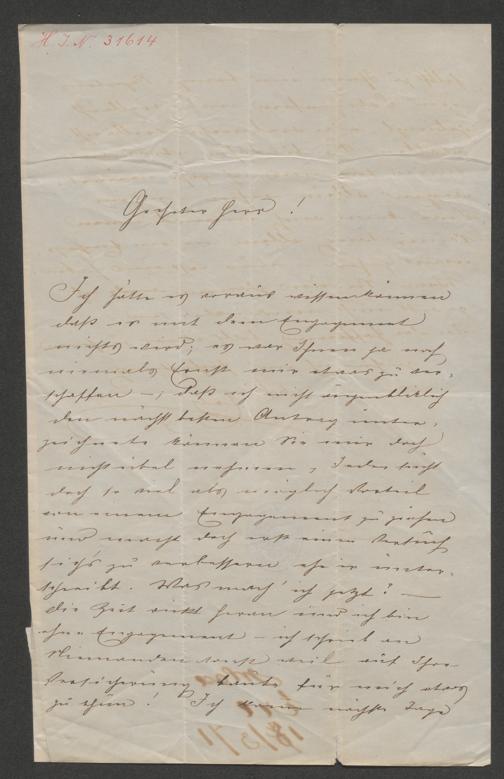 H. I. N. 31614
Geehrter Herr!
Ich hätte es voraus wissen können
daß es mit dem Engagement
nichts wird; es war Ihnen ja noch
niemals Ernst mir etwas zu ver-
schaffen –, daß ich nicht augenblicklich
den nächst besten Antrag unter-
zeichnete können Sie mir doch
nicht übel nehmen, Jeder sucht
doch so viel als möglich Vorteil
von einem Engagement zu ziehen
und macht doch erst einen Versuch
sich's zu verbessern ehe er unter-
schreibt. Was mach' ich jetzt? –
die Zeit rückt heran und ich bin
ohne Engagement – ich schrieb an
Niemanden sonst weil auf Ihre
Versicherung baute für mich etwas
zu thun! Ich komme nächste Tage